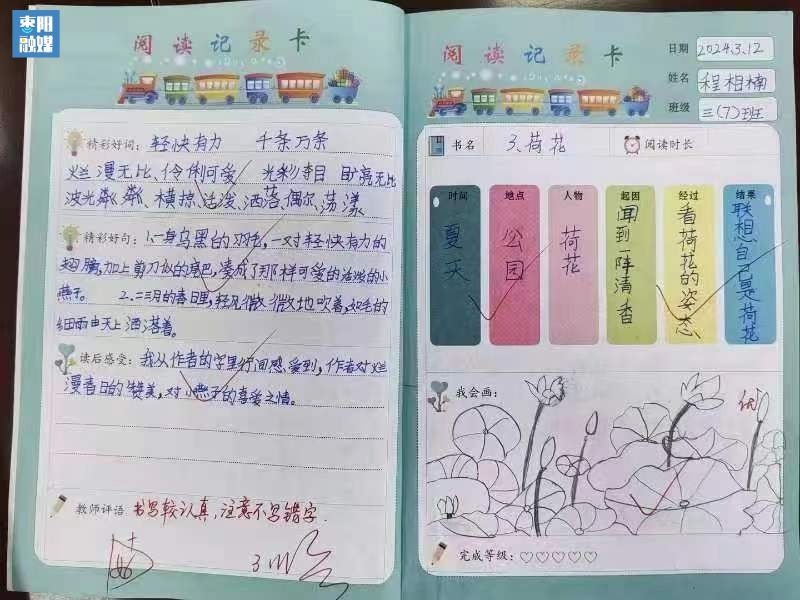 枣阳
融媒
阅读记录卡
精彩好词: 轻快有力 千条万条
烂漫无比、伶俐可爱 光彩夺目 
波光粼粼、横掠、活泼、洒落、偶尔、荡漾
精彩好句: 1.一身乌黑的羽毛,一对轻快有力的
翅膀,加上剪刀似的尾巴,凑成了那样可爱的活泼的小
燕子。 2.二三月的春日里,轻风微微地吹着,如毛的
细雨由天上洒落着。
读后感受: 我从作者的字里行间感受到,作者对烂
漫春日的赞美,对小燕子的喜爱之情。
教师评语 书写较认真,注意不写错字.
阅读记录卡
日期 2024.3.12
姓名 程相楠
班级 三(7)班
书名 3、荷花 阅读时长
时间 地点 人物 起因 经过 结果
夏天 公园 荷花 闻到一阵清香 看荷花的姿态 联想自己是荷花
我会画:
优
完成等级:♡♡♡♡♡